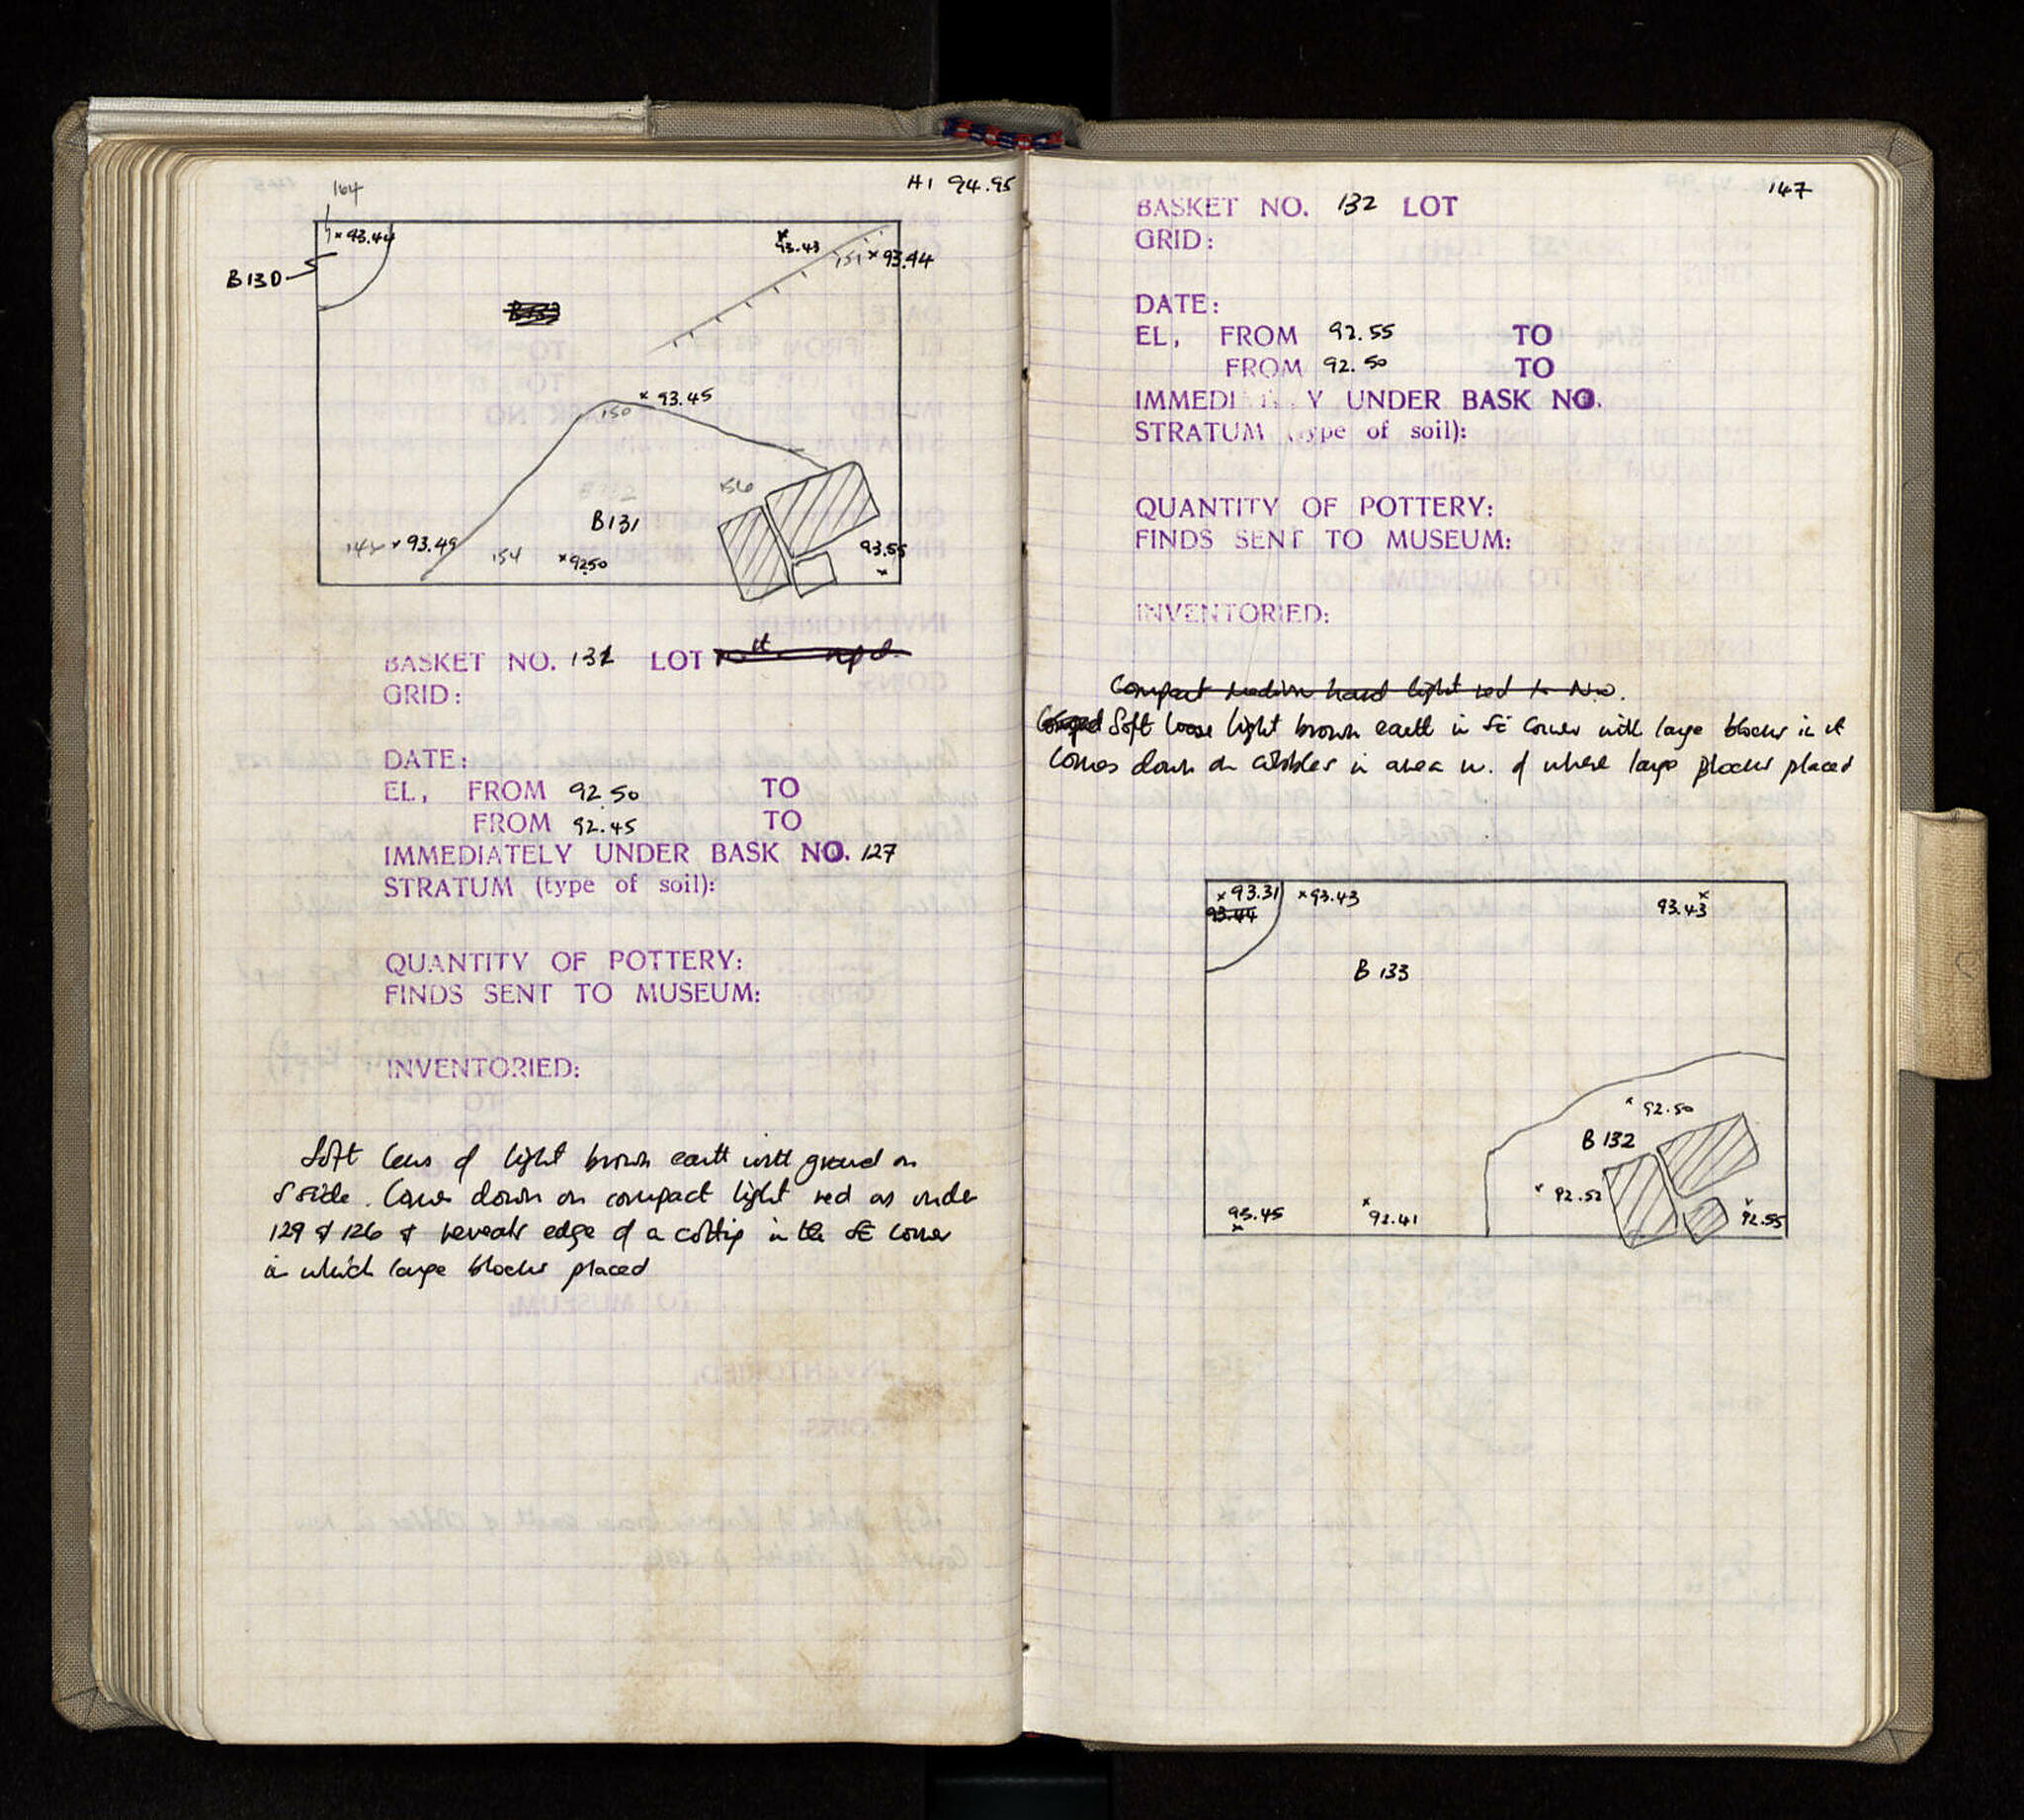 164
H1 94.95
x 93.44
x
93.43
151 x 93.44
B130
x 93.45
150
156
B131
x 93.49
154
x 92.50
93.55
x
BASKET NO. 131 LOT
GRID:
DATE:
EL, FROM 92.50 TO
FROM 92.45 TO
IMMEDIATELY UNDER BASK NO. 127
STRATUM (type of soil):
QUANTITY OF POTTERY:
FINDS SENT TO MUSEUM:
INVENTORIED:
Soft lens of light brown earth with gravel on
S side. Comes down on compact light red as under
129 & 126 & reveals edge of a cutting in the SE corner
in which large blocks placed
147
BASKET NO. 132 LOT
GRID:
DATE:
EL, FROM 92.55 TO
FROM 92.50 TO
IMMEDI Y UNDER BASK NO.
STRATUM (type of soil):
QUANTITY OF POTTERY:
FINDS SENT TO MUSEUM:
INVENTORIED:
Compact medium hard light red to
Soft loose light brown earth in SE corner with large blocks in it
Comes down on cobbles in area w. of where large blocks placed
x 93.31 x 93.43
93.44
x
93.43
B 133
x 92.50
B 132
x 92.52
93.45
x
x
92.41
x
92.55